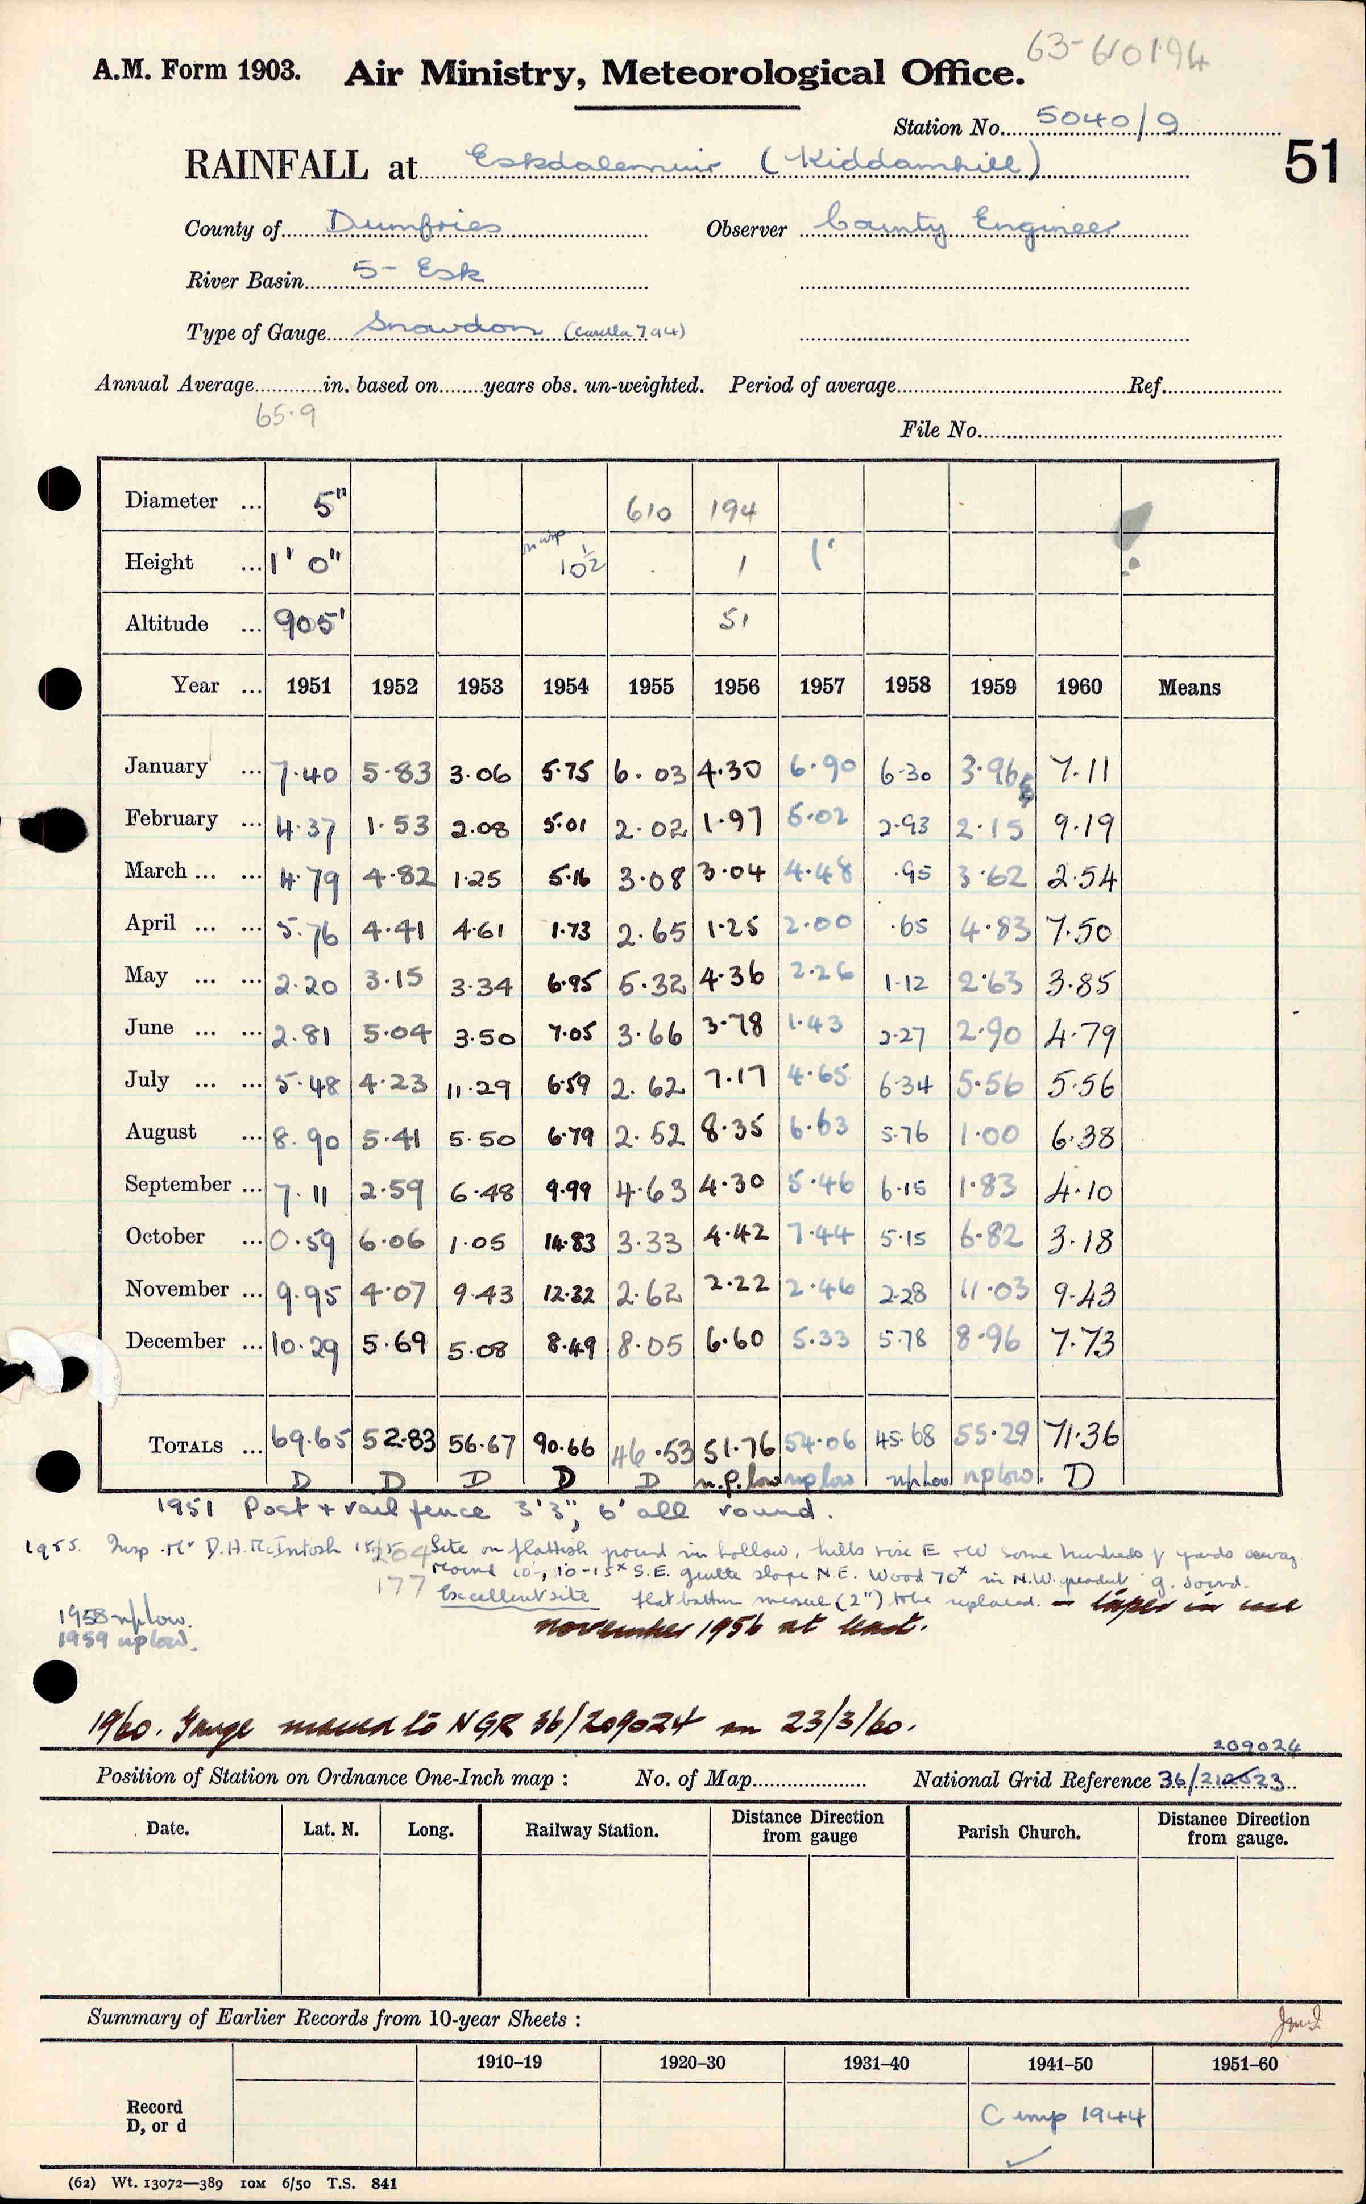 63-610194
A.M. Form 1903. Air Ministry, Meteorological Office.
Station No. 5040/9
51
RAINFALL at Eskdalemuir (Kiddamhill)
County of Dumfries Observer County Engineer
River Basin 5- Esk
Type of Gauge Snowdon (Casella 794)
Annual Average in. based on years obs. un-weighted. Period of average Ref.
65.9
File No.
Diameter ... 5" 610 194
Height ... 1' 0" insp 10½ 1 1'
Altitude ... 905' 51
Year ... 1951 1952 1953 1954 1955 1956 1957 1958 1959 1960 Means
January ... 7.40 5.83 3.06 5.75 6.03 4.30 6.90 6.30 3.96 7.11
February ... 4.37 1.53 2.08 5.01 2.02 1.97 5.02 2.93 2.15 9.19
March ... ... 4.79 4.82 1.25 5.16 3.08 3.04 4.48 .95 3.62 2.54
April ... ... 5.76 4.41 4.61 1.73 2.65 1.25 2.00 .65 4.83 7.50
May ... ... 2.20 3.15 3.34 6.95 5.32 4.36 2.26 1.12 2.63 3.85
June ... ... 2.81 5.04 3.50 7.05 3.66 3.78 1.43 2.27 2.90 4.79
July ... ... 5.48 4.23 11.29 6.59 2.62 7.17 4.65 6.34 5.56 5.56
August ... 8.90 5.41 5.50 6.79 2.52 8.35 6.63 5.76 1.00 6.38
September ... 7.11 2.59 6.48 9.99 4.63 4.30 5.46 6.15 1.83 4.10
October ... 0.59 6.06 1.05 14.83 3.33 4.42 7.44 5.15 6.82 3.18
November ... 9.95 4.07 9.43 12.32 2.62 2.22 2.46 2.28 11.03 9.43
December ... 10.29 5.69 5.08 8.49 8.05 6.60 5.33 5.78 8.96 7.73
TOTALS ... 69.65 52.83 56.67 90.66 46.53 51.76 54.06 45.68 55.29 71.36
D D D D D n.p. low np low np low np low. D
1951 Post + rail fence 3'3", 6' all round.
1955. Insp. Mr D.A. McIntosh Site on flattish ground in hollow, hills rise E + W some hundreds of yards away
204 round 10-15x S.E. gentle slope N.E. Wood 70x in N.W. quadrant g. sound.
177 Excellent site flat bottom measure (2") to be replaced. - taper in use
November 1956 at least.
1958 np low.
1959 np low.
1960. Gauge moved to NGR 36/209024 on 23/3/60.
209024
Position of Station on Ordnance One-Inch map : No. of Map National Grid Reference 36/212023
Date. Lat. N. Long. Railway Station. Distance Direction from gauge Parish Church. Distance Direction from gauge.
Summary of Earlier Records from 10-year Sheets :
1910–19 1920–30 1931–40 1941–50 1951–60
Record D, or d C insp 1944
(62) Wt. 13072—389 10M 6/50 T.S. 841